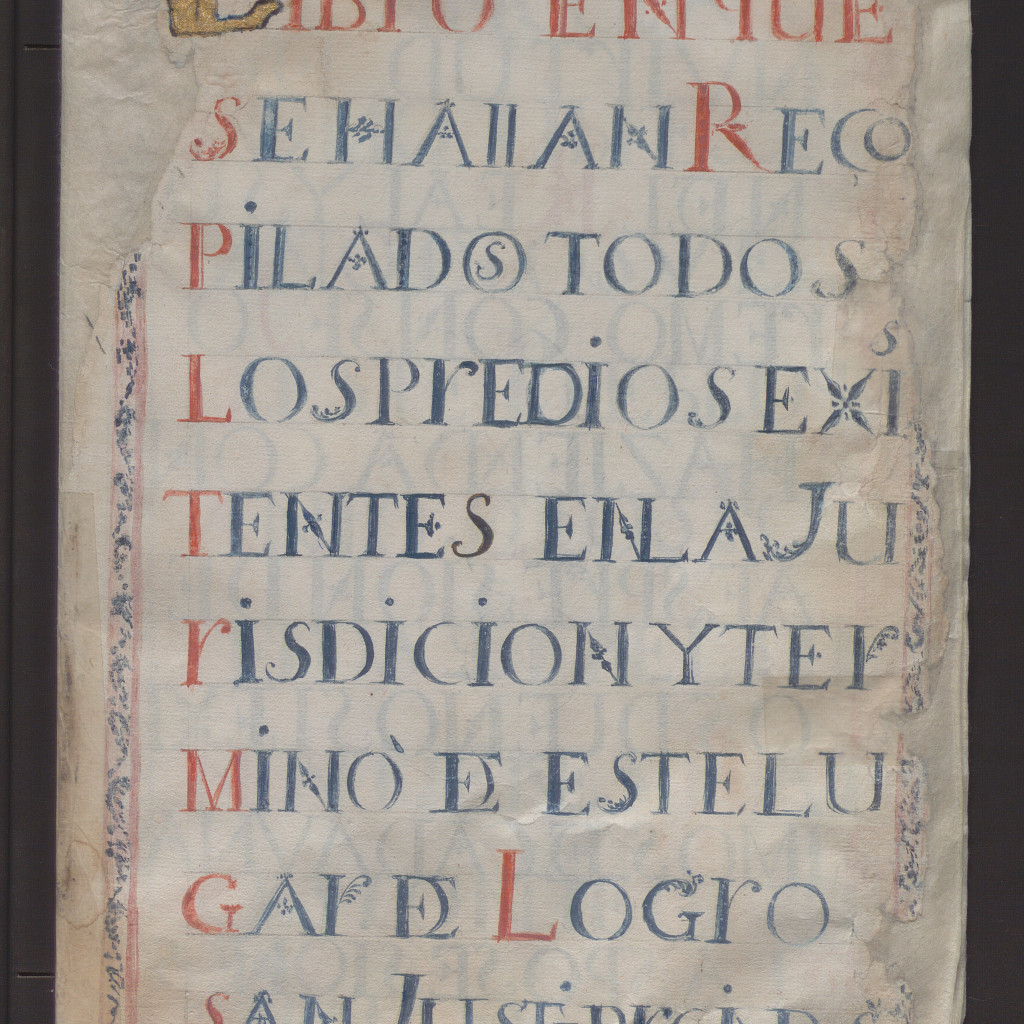 LIBrO EN QUE
SE HAllAN REÇO
PiLADOS TODOS
LOS PrEDiOS EXiS
TENTES EN LA JU
riSDiCiON Y TEr
MiNO DE ESTE LU
GAr DE LOGrO
SAN JUSE